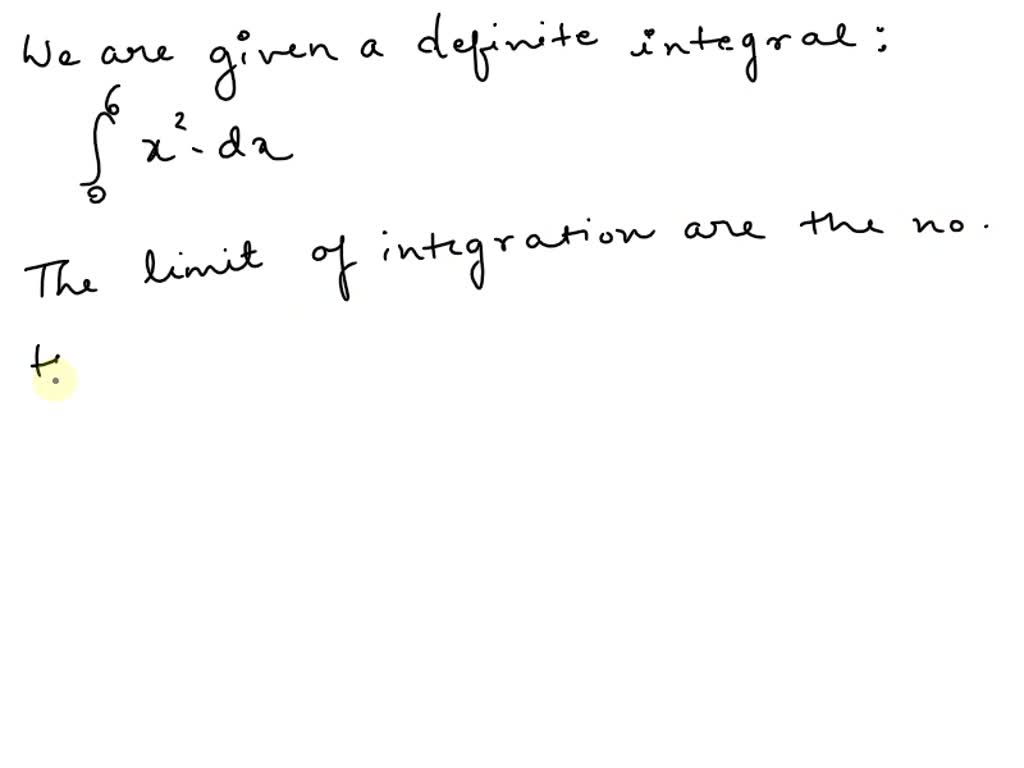 We are given a definite integral:
∫₀⁶ x² · dx
The limit of integration are the no.
t